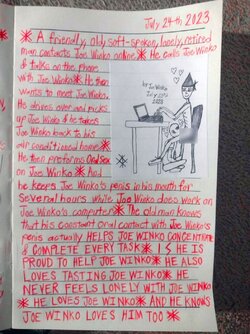 July 24th 2023
✱ A friendly, old, soft-spoken, lonely, retired
man contacts Joe Winko online ✱ He calls Joe Winko
& talks on the phone
with Joe Winko ✱ He then
wants to meet Joe Winko.
He drives over and picks
up Joe Winko & he takes
Joe Winko back to his
air conditioned home ✱
He then preforms Oral Sex
on Joe Winko ✱ And
by Joe Winko
July 24th
2023
he keeps Joe Winko's penis in his mouth for
several hours while Joe Winko does work on
Joe Winko's computer ✱ The old man knows
that his constant oral contact with Joe Winko's
penis actually HELPS JOE WINKO CONCENTRATE
& COMPLETE EVERY TASK ✱ & HE IS
PROUD TO HELP JOE WINKO ✱ HE ALSO
LOVES TASTING JOE WINKO ✱ HE
NEVER FEELS LONELY WITH JOE WINKO
✱ HE LOVES JOE WINKO ✱ AND HE KNOWS
JOE WINKO LOVES HIM TOO ✱